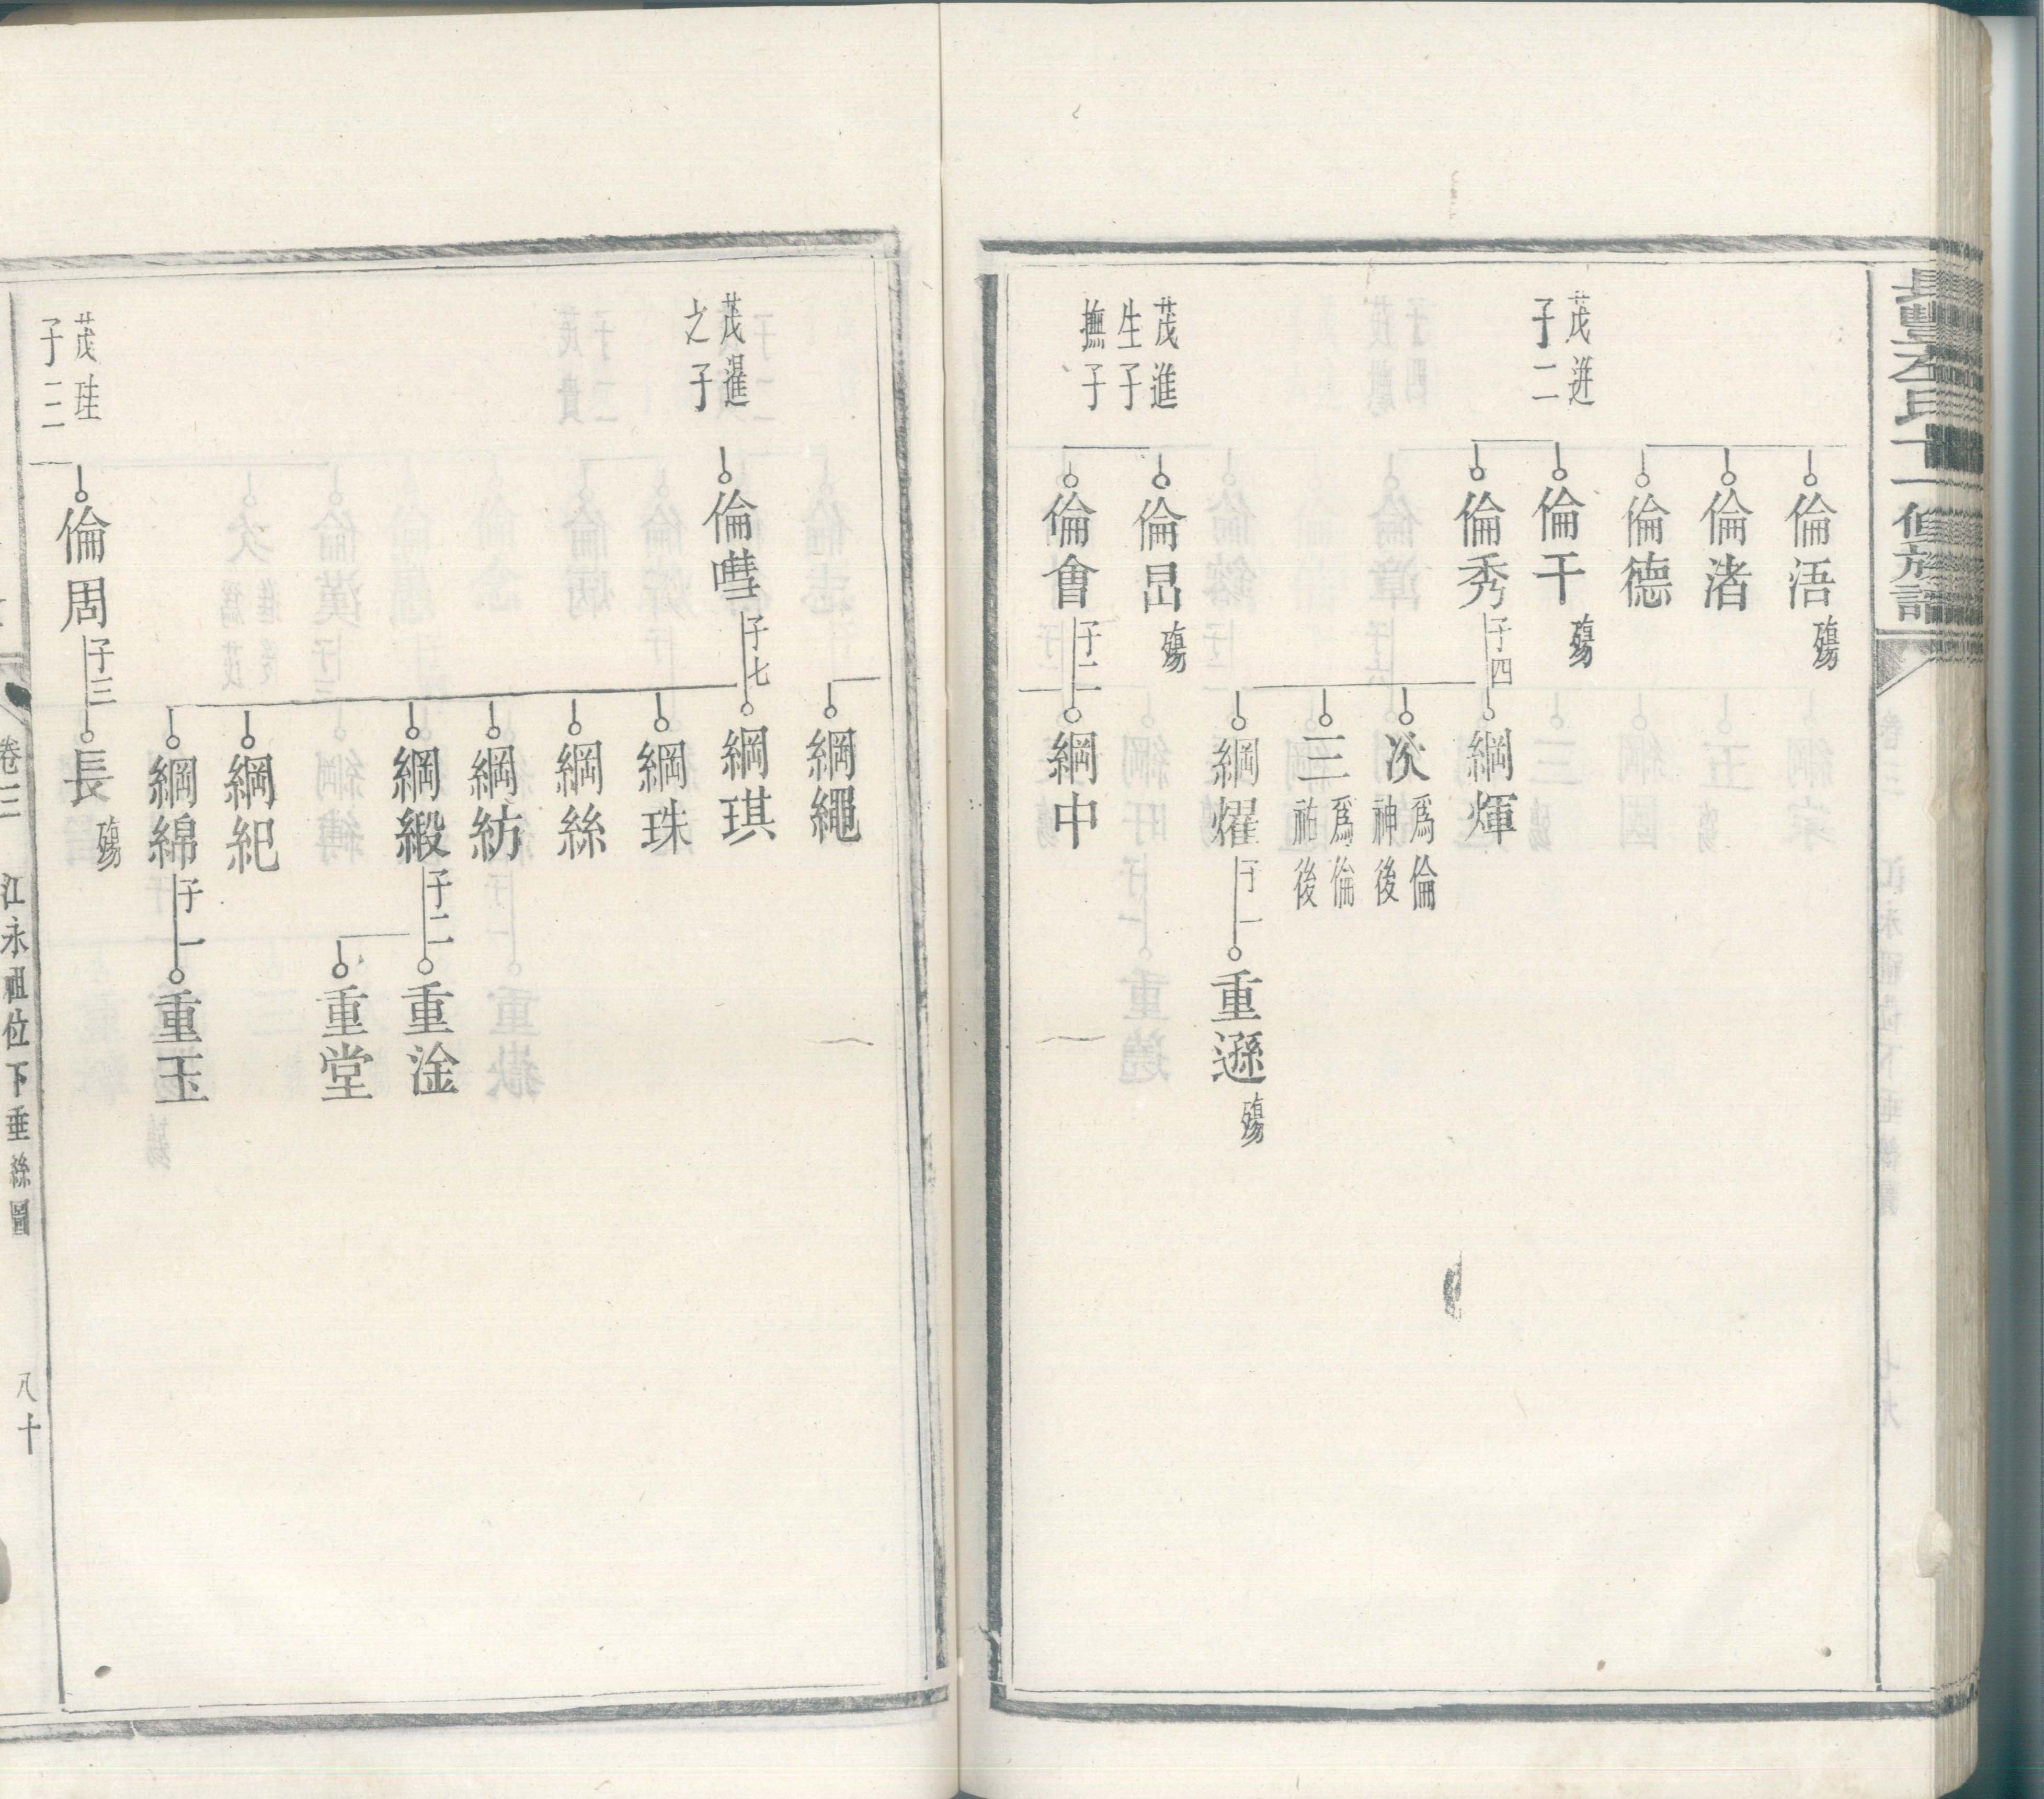 長豐左氏十一修族譜
倫浯 殤
倫渚
倫德
茂迸
子二
倫干 殤
倫秀 子四
綱煇
次 為倫
神後
三 為倫
祐後
綱燿 子一
重遜 殤
茂進
生子
撫子
倫昌 殤
倫會 子二
綱中
綱繩
茂暹
之子
倫嘒 子七
綱琪
綱珠
綱絲
綱紡
綱緞 子二
重淦
重堂
綱紀
綿綿 子一
重玉
茂珪
子二
倫周 子三
長 殤
卷三
江永祖位下垂絲圖
八十